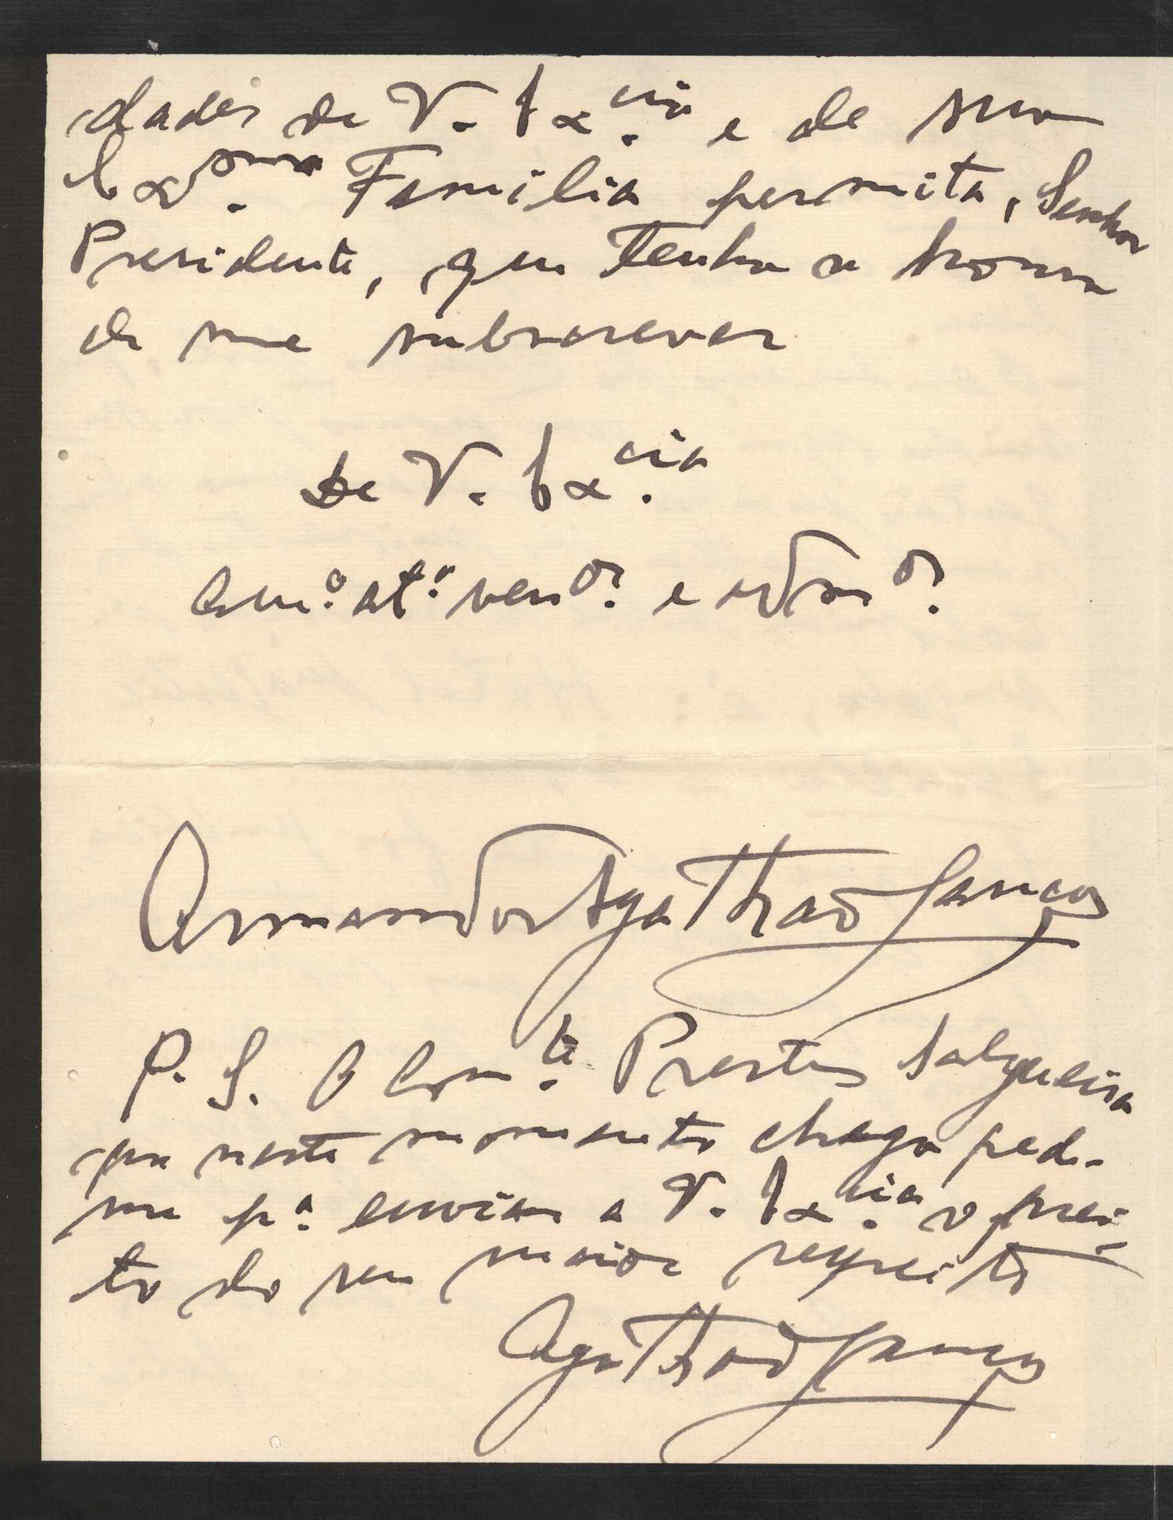 dades de V. Ex.cia e de sua
Ex.ma Familia permita, Senhor
Presidente, que tenha a honra
de me subscrever
De V. Ex.cia
Am.º at.º ven.or e
Armando Agathão Lança
P. S. O Com.te Prestes Salgueiro
que neste momento chega pede-
me p.ª enviar a V. Ex.cia o prei-
to do seu maior respeito
Agathão Lança